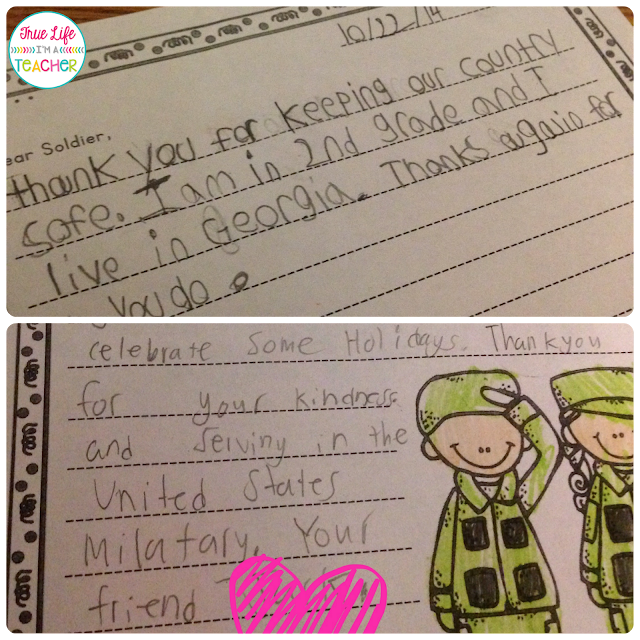 True Life
I'M A
TEACHER
10/22/14
ear Soldier,
thank you for keeping our country
safe. I am in 2nd grade and I
live in Georgia. Thanks again for
you do
celebrate some Holidays. Thankyou
for your kindness
and serving in the
United States
Milatary. Your
friend